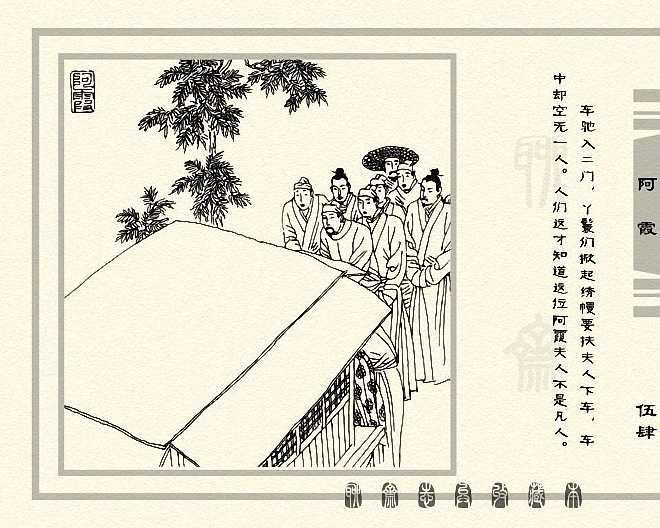 阿霞
车驰入二门，丫鬟们掀起绣幔要扶夫人下车，车
中却空无一人。人们这才知道这位阿霞夫人不是凡人。
阿霞
伍肆
聊斋志异收藏本